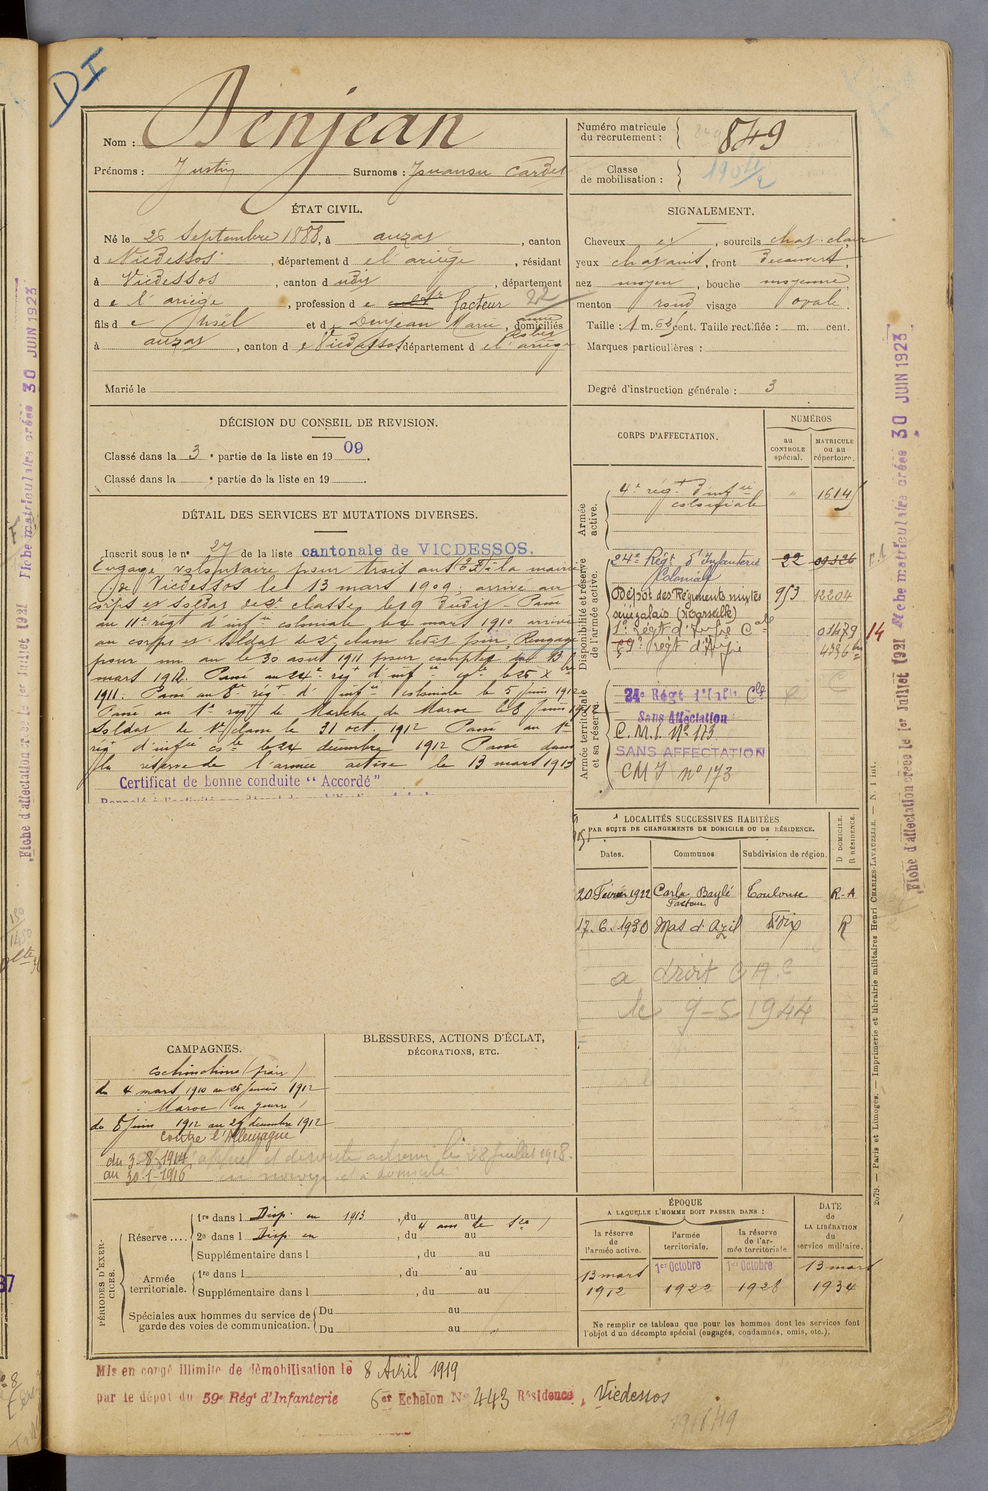 DI
Nom : Denjean
Prénoms : Justin Surnoms :
Numéro matricule du recrutement : 849
Classe de mobilisation :
ÉTAT CIVIL.
Né le 26 Septembre 1888, à auzat, canton
d Vicdessos, département d e l'ariège, résidant
à Vicdessos, canton d udit, département
d e l'ariège, profession d e facteur 22
fils d e et d e Denjean Marie, domiciliés
à auzat, canton d e Vicdessos, département d e l'ariège
Marié le
SIGNALEMENT.
Cheveux, sourcils chat. clair
yeux chatains, front découvert,
nez moyen, bouche moyenne
menton rond visage ovale.
Taille : 1 m. 62 cent. Taille rectifiée : m. cent.
Marques particulières :
Degré d'instruction générale : 3
DÉCISION DU CONSEIL DE REVISION.
Classé dans la 3 e partie de la liste en 1909.
Classé dans la e partie de la liste en 19 .
DÉTAIL DES SERVICES ET MUTATIONS DIVERSES.
Inscrit sous le n° 27 de la liste cantonale de VICDESSOS.
Engagé volontaire pour trois ans à la mairie
de Vicdessos le 13 mars 1909, arrivé au
corps et soldat de 2e classe le 9 dudit - Passé
au 11e régt d'infie coloniale le 4 mars 1910 arrivé
au corps et soldat de 2e classe le dit jour, Rengagé
pour un an le 30 aout 1911 pour compter du 13
mars 1912. Passé au 24e régt d'infie cole le 25 Xbre
1911. Passé au 8e régt d'infie coloniale le 5 juin 1912
Passé au 1er régt de Marche du Maroc le 8 juin 1912
Soldat de 1re classe le 31 oct. 1912 Passé au 1er
rég d'infie cole le 24 décembre 1912 Passé dans
la réserve de l'armée active le 13 mars 1913
Certificat de bonne conduite "Accordé"
CORPS D'AFFECTATION.
NUMÉROS
au CONTROLE spécial.
MATRICULE ou au répertoire.
Armée active.
4e régt d'infie coloniale " 1614
Disponibilité et réserve de l'armée active.
24e Régt d'Infanterie Coloniale 22
Dépôt des Régiments mixtes sénégalais 9/3 12204
1er Régt d'Infie Cale 01479
59e régt d'Infie
14
Armée territoriale et sa réserve
24e Régt d'Infie Cle
Sans Affectation
C.M.I. N° 173
SANS AFFECTATION
CMI n° 173
LOCALITÉS SUCCESSIVES HABITÉES
PAR SUITE DE CHANGEMENTS DE DOMICILE OU DE RÉSIDENCE.
Dates. Communes Subdivision de région. D DOMICILE. R RÉSIDENCE.
20 Février 1922 Carla Baylé Facteur Toulouse R-A
17.6.1930 Mas d'Azil Foix R
a droit C A C
le 9-5 1944
CAMPAGNES.
Cochinchine (paix)
du 4 mars 1910 au 25 janvier 1912
Maroc (en guerre)
du 8 juin 1912 au 29 décembre 1912
Contre l'Allemagne
du 3-8-1914
au 30-1-1916
BLESSURES, ACTIONS D'ÉCLAT,
DÉCORATIONS, ETC.
PÉRIODES D'EXERCICES.
Réserve.... 1re dans l Disp. en 1913, du au
2e dans l Disp. en, du au
Supplémentaire dans l, du au
Armée territoriale. 1re dans l, du au
Supplémentaire dans l, du au
Spéciales aux hommes du service de garde des voies de communication. Du au
Du au
ÉPOQUE
A LAQUELLE L'HOMME DOIT PASSER DANS :
la réserve de l'armée active.
l'armée territoriale.
la réserve de l'armée territoriale
DATE de LA LIBÉRATION du service militaire.
13 mars 1912
1er Octobre 1922
1er Octobre 1928
13 mars 1934
Ne remplir ce tableau que pour les hommes dont les services font
l'objet d'un décompte spécial (engagés, condamnés, omis, etc.).
Mis en congé illimité de démobilisation le 8 Avril 1919
par le dépôt du 59e Régt d'Infanterie 6er Echelon N° 443 Résidence, Vicdessos
Fiche matriculaire créée 30 JUIN 1923
Fiche d'affectation créée le 1er Juillet 1921
2079. — Paris et Limoges. — Imprimerie et librairie militaires Henri CHARLES-LAVAUZELLE. — N. 1 int.
Fiche matriculaire créée 30 JUIN 1923
Fiche d'affectation créée le 1er Juillet 1921
37